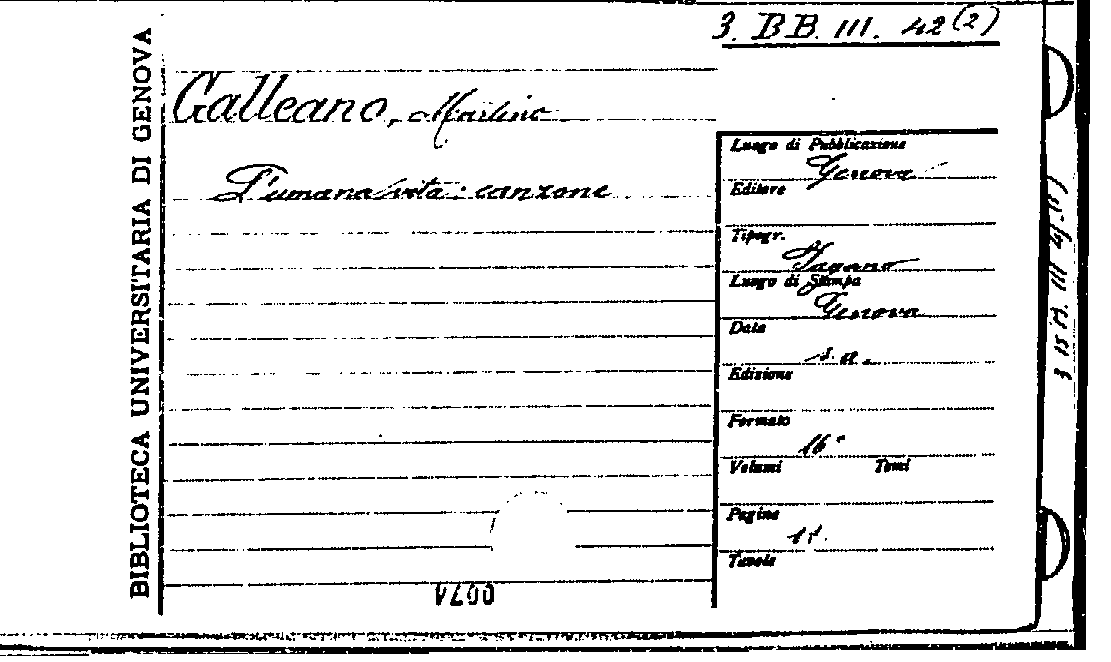 3. BB. III. 42 (2)
BIBLIOTECA UNIVERSITARIA DI GENOVA
Galleano, Martino
L'umana vita: canzone
Luogo di Pubblicazione
Genova
Editore
Tipogr.
Pagano
Luogo di Stampa
Genova
Data
s. a.
Edizione
Formato
16°
Volumi Tomi
Pagine
Tavole